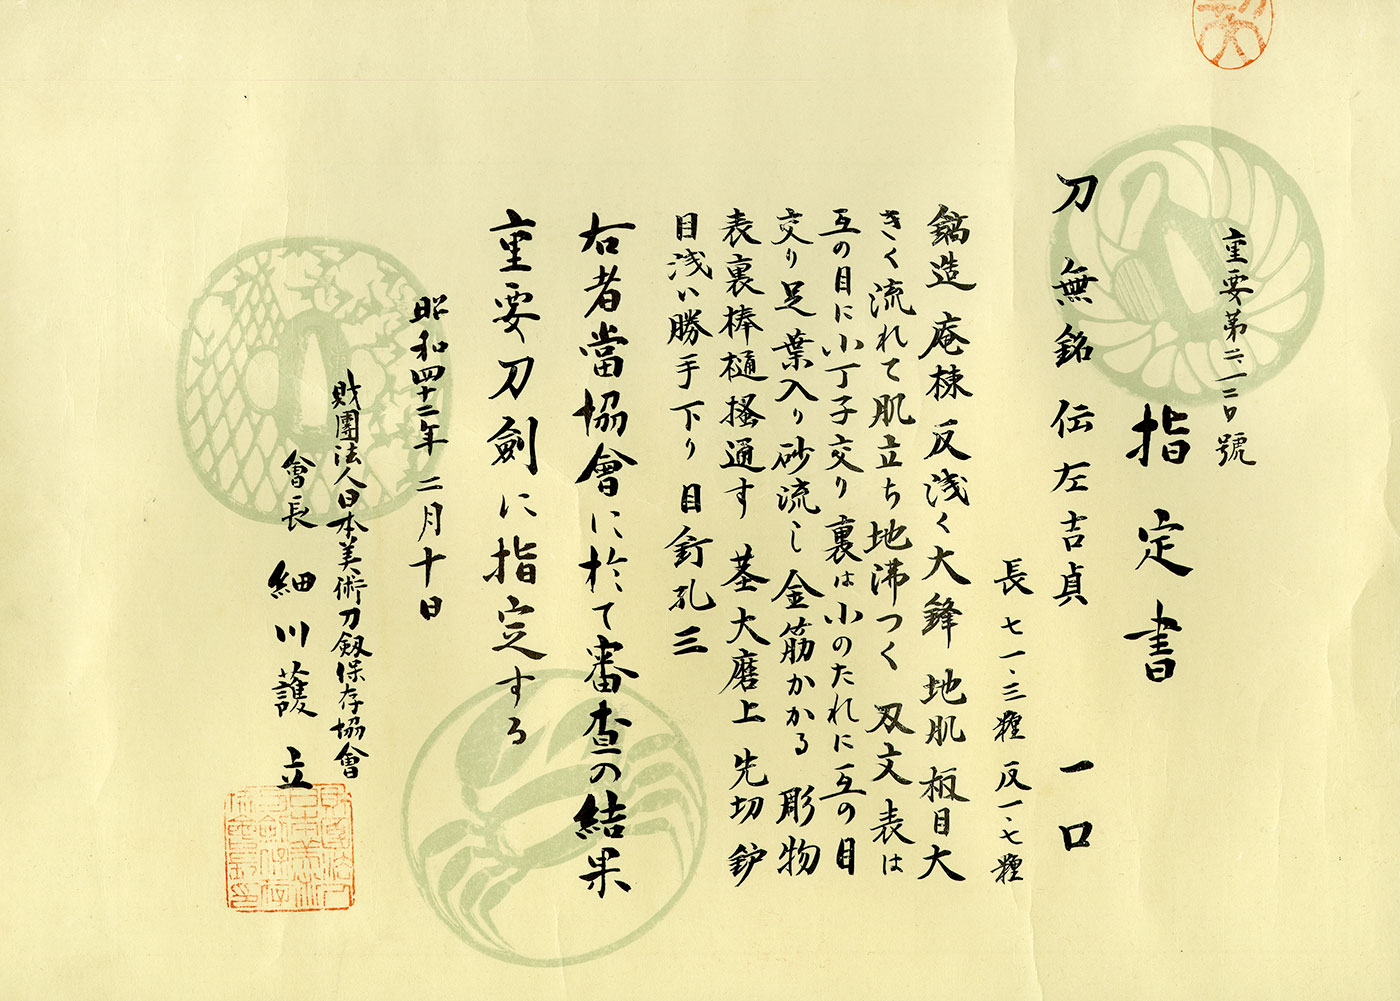 重要第二、一二〇號
指定書
刀 無銘 伝左吉貞 一口
長 七一・三糎 反一・七糎
鎬造 庵棟 反浅く大鋒 地肌 板目大
きく流れて肌立ち地沸つく 刄文 表は
互の目に小丁子交り裏は小のたれに互の目
交り足 葉入り砂流し 金筋かかる 彫物
表裏棒樋搔通す 茎 大磨上 先切 鈩
目浅い勝手下り 目釘孔 三
右者當協會に於て審査の結果
重要刀劍に指定する
昭和四十二年 二月十日
財團法人日本美術刀剱保存協會
會長 細川護立